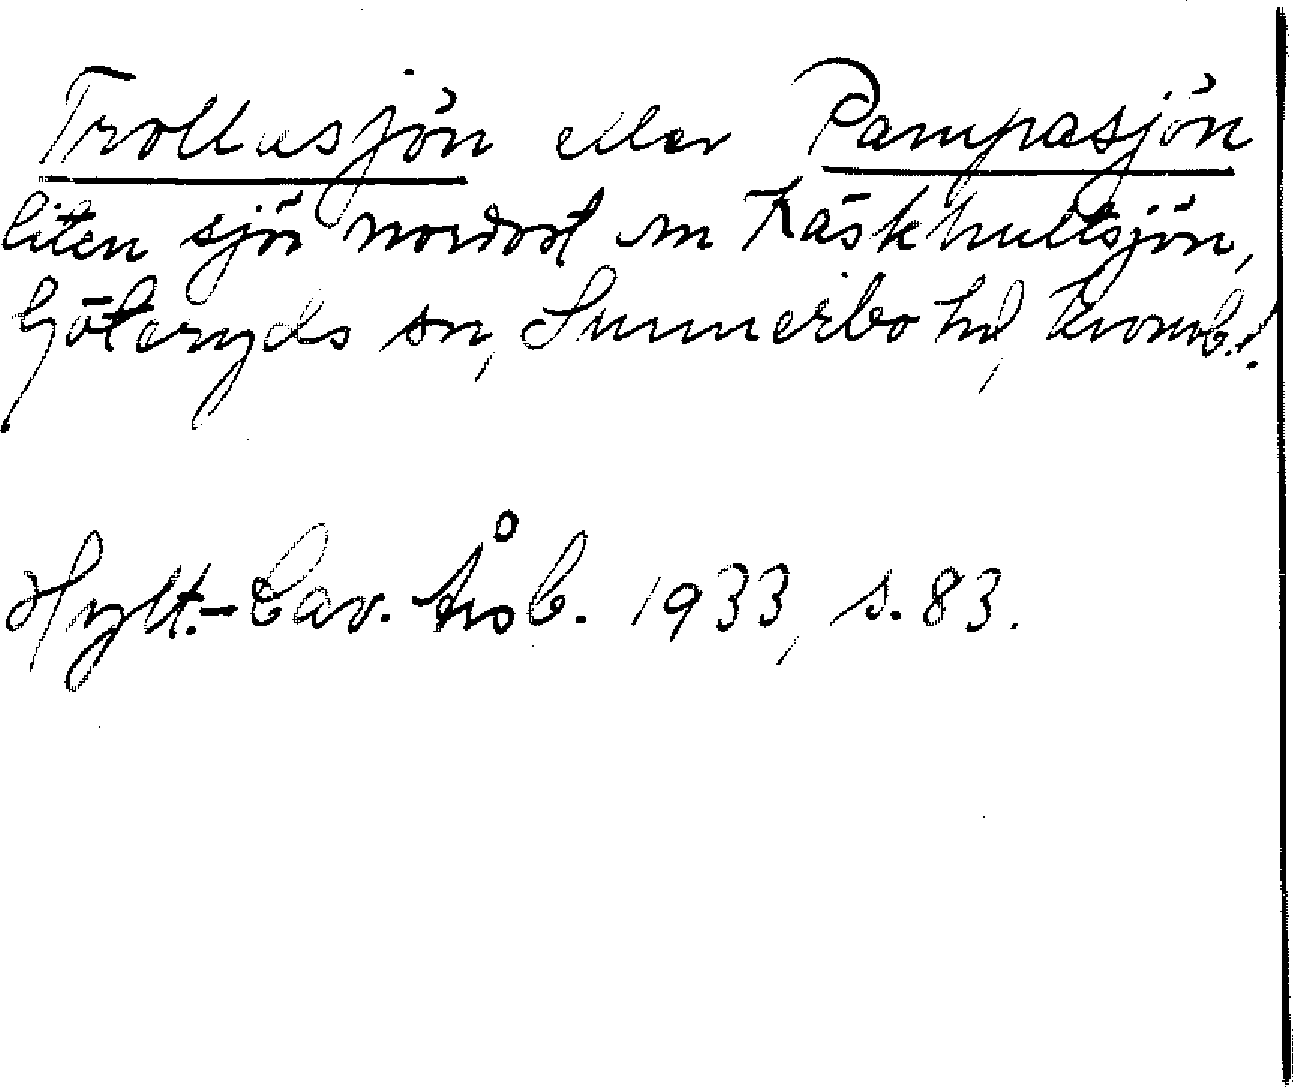 Trollasjön eller Pampasjön
liten sjö nordost om Käskhultsjön,
Göteryds sn, Sunnerbo hd, Kronob. l.
Hylt.-Cav. Årsb. 1933, s. 83.